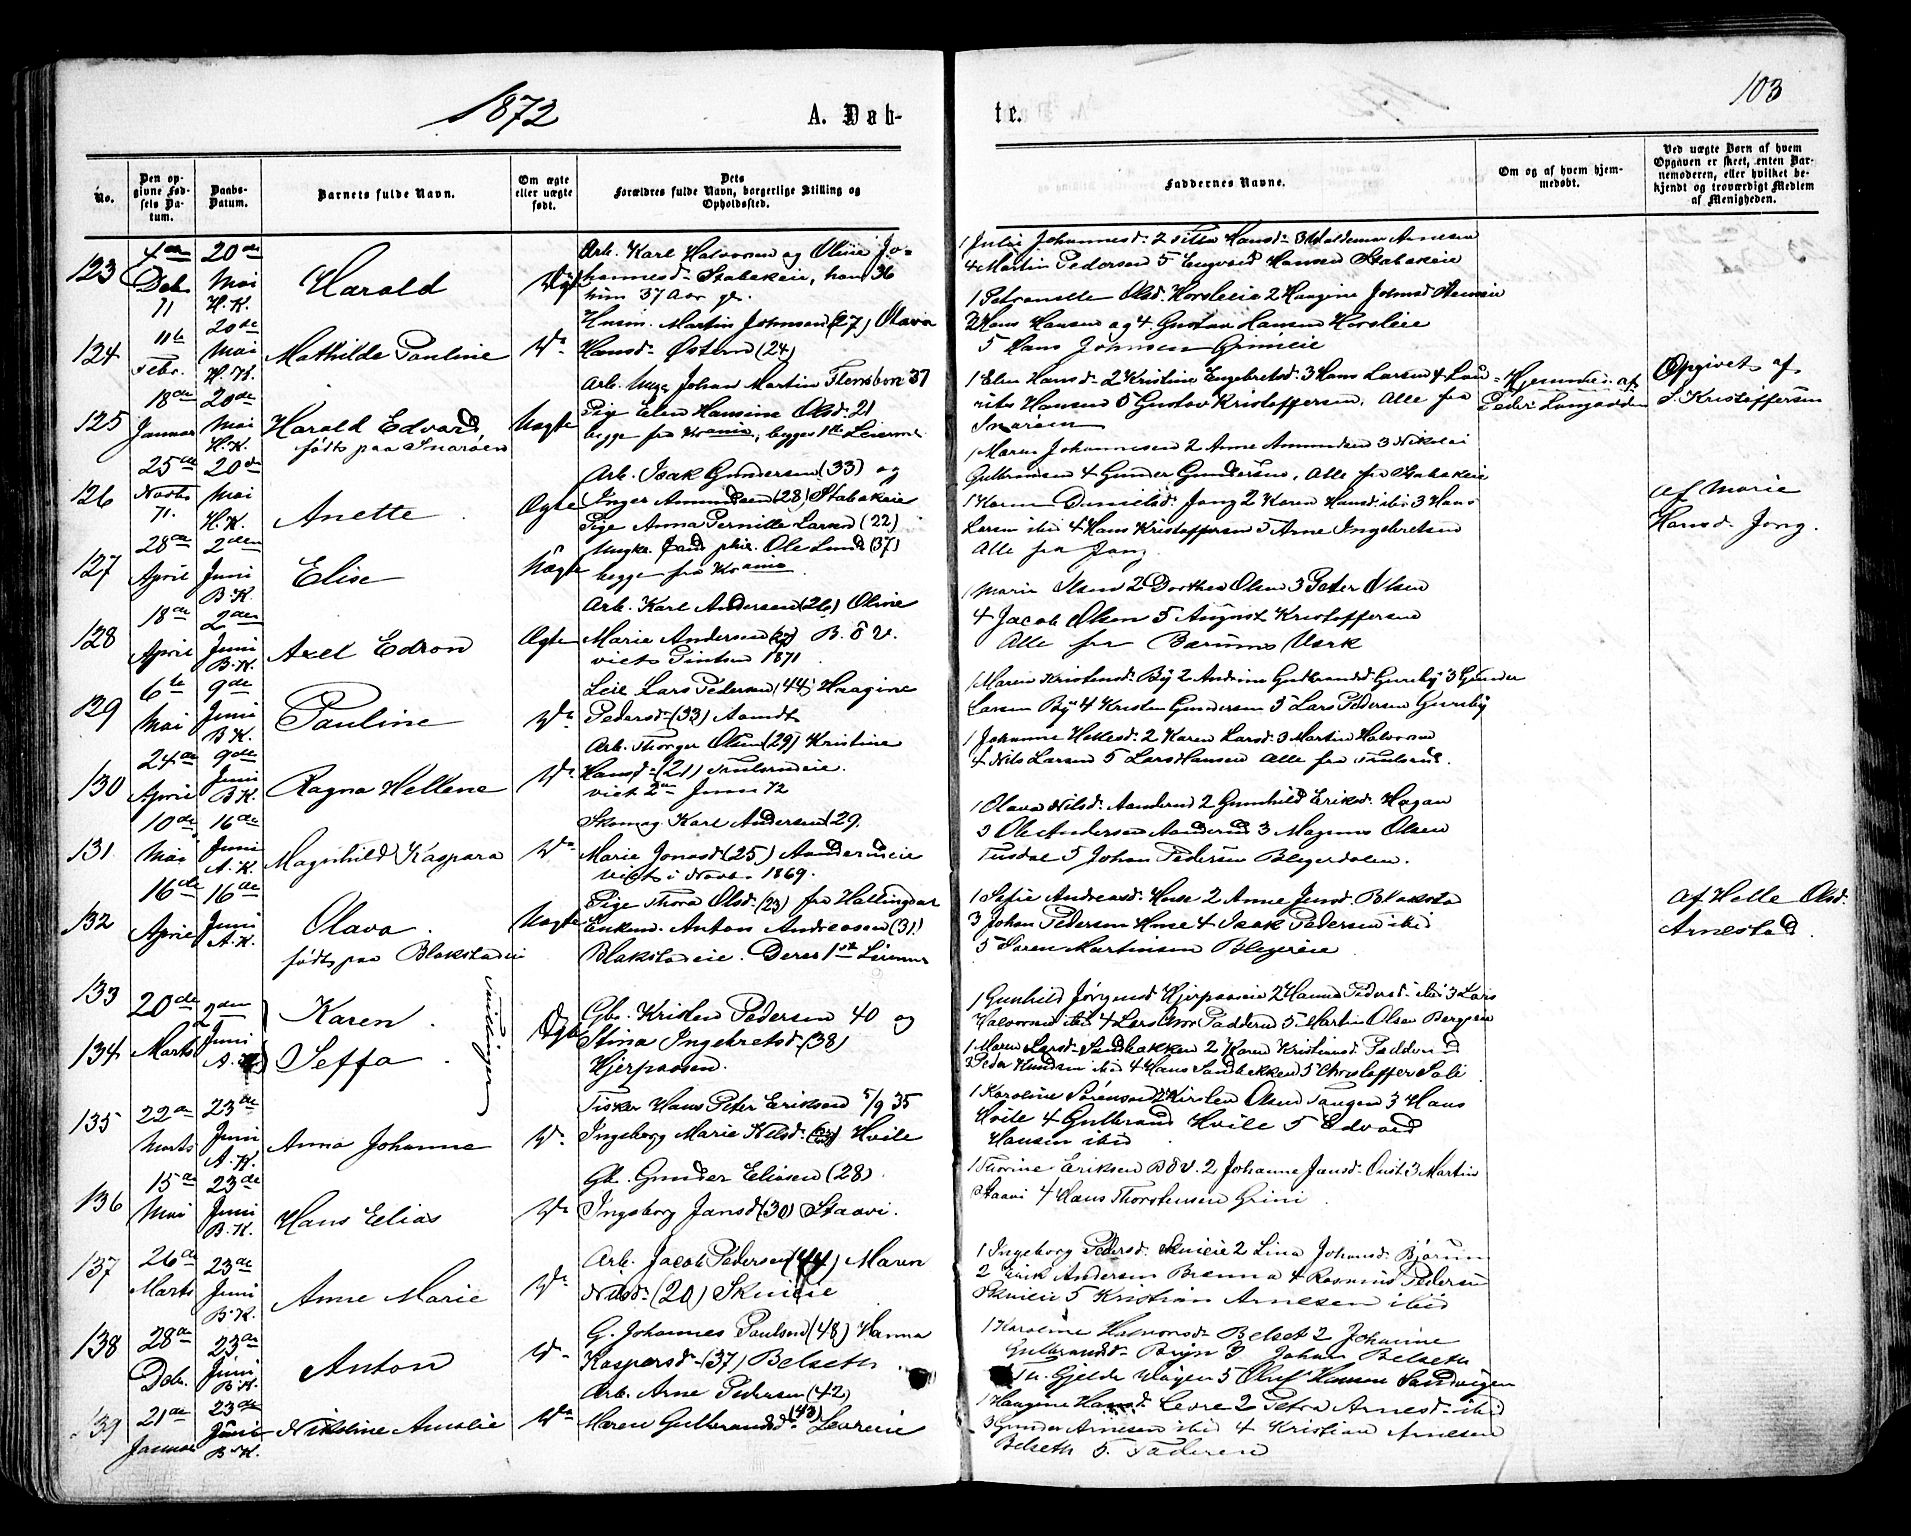 1872
A. Døb-
te.
103
No.
Den op-
givne Fød-
sels Da-
tum.
Daabs-
Datum.
Barnets fulde Navn.
Om ægte
eller uægte
født.
Dets
Forældres fulde Navn, borgerlige Stilling og
Opholdssted.
Faddernes Navne.
Om og af hvem hjem-
medøbt.
Ved uægte Børn af hvem
Opgaven er skeet, enten Bar-
nemoderen, eller hvilket be-
kjendt og troværdigt Medlem
af Menigheden.
123
4de
Deb.
71
20de
Mai
H. K.
Harald
Arb. Karl Halvorsen og Oline Jo-
hannesd. Stabækeie, han 36
hun 37 Aar gl.
1 Julie Johannesd. 2 Hansd. 3 Waldemar Arnesen
4 Martin Pedersen 5 Engvard Hansen Stabækeie
124
11te
Febr.
20de
Mai
H. K.
Mathilde Pauline
Do
Husm. Martin Johnsen (27) Olava
Hansd. Østern (24)
1 Petronelle Olsd. Horsleeie 2 Haagine Johnsd.
3 Hans Hansen og 4. Gustav Hansen Horsleie
5 Hans Johnsen Grinieie
125
18de
Januar
20de
Mai
H. K.
Harald Edvard
født paa Snarøen
Uægte
Arb. Ungk. Johan Martin 37
Pige Elen Hansine Olsd. 21
begge fra Krania, begges 1ste Leierm.
1 Elen Hansd. 2 Kristine Engebretsd. 3 Hans Larsen 4 Lau-
rits Hansen 5 Gustav Kristoffersen. Alle fra
Snarøen
Hjemmed. af
Peder
Opgivet af
Kristoffersen
126
25de
Novbr.
71.
20de
Mai
H. K.
Anette
Ægte
Arb. Isak Gundersen (33) og
Inger Amundsen (28) Stabækeie
1 Maren Johannesen 2 Anne Amundsen 3 Nikolai
Gulbransen 4 Gunder Gundersen. Alle fra Stabækeie
127
28de
April
2den
Juni
B. K.
Elise
Uægte
Pige Anna Pernille Larsen (22)
Ungk. Cand. phil. Ole Lund (37)
begge fra Krania.
1 Karen Danielsd. Jong 2 Karen Hansd. ibid 3 Hans
Larsen ibid 4 Hans Kristoffersen 5 Arne Ingebretsen
Alle fra Jong
af Marie
Hansd. Jong.
128
18de
April
2den
Juni
B. K.
Axel Edron
Ægte
Arb. Karl Andersen (26) Oline
Marie Andersen B. V.
viet Pintsen 1871
Marie Olsen 2 Dorthea Olsen 3 Peter Olsen
4 Jacob Olsen 5 August Kristoffersen
Alle fra Bærums Værk
129
6te
Mai
9de
Juni
B K.
Pauline
Do
Leil. Lars Pedersen (44) Haagine
Pedersd. (33)
1 Maren Kristensd. By 2 Andrine Gulbrandsd. Gursby 3 Gunder
Larsen By 4 Kristen Gundersen 5 Lars Pedersen Gursby
130
24de
April
9de
Juni
B K.
Ragna Hellene
Do
Arb. Thorger Olsen (29) Kristine
Hansd. (21)
viet 2den Juni 72
1 Johanne 2 Karen Larsd. 3 Martin Halvorsen
4 Nils Larsen 5 Lars Hansen Alle fra
131.
10de
Mai
16de
Juni
A. K.
Magnhild Kaspara
Do
Skomag. Karl Andersen (29.
Marie Jonasd. (25) Aanderudeie
viet i Novbr. 1869.
1 Olava Nilsd. Aanderud 2 Gunhild Eriksd. Hagan
3 Ole Andersen Aanderud 3 Magnus Olsen
5 Johan Pedersen Blegerdalen.
132
16de
April
16de
Juni
A. K.
Olava.
født paa Blakstadeie
Uægte
Pige Thora Olsd. (23) fra Hallingdal
Enkem. Anton Andreassen (31)
Blakstadeie. Deres 1ste Leierm.
1 Sofie Andreasd. 2 Anne Jensd. Blakstad
3 Johan Pedersen 4 Isak Pedersen ibid
5 Søren Martinsen Blegereie
af Helle Olsd.
Arnestad.
133
134
20de
Marts
2den
Juni
A. K.
Karen.
Seffa.
Tvillinger
Ægte
Gbr. Kristen Pedersen 40 og
Stina Ingebretsd. (38)
Hjerpaasen.
1 Gunhild Jørgensd. Hjerpaaseie 2 Hanna Pedersd. ibid 3 Lars
Halvorsen ibid 4 Lars 5 Martin Olsen
1 Maren Larsd. Sandbakken 2 Karen Kristiansd.
3 Peder ibid 4 Hans Sandbakken 5 Christoffer
135
22de
Marts
23de
Juni
A. K.
Anna Johanne
Do
Tisker Hans Peter Eriksen 5/9 35
Ingeborg Marie Nilsd. Hvile
1 Karoline Sørensen 2 Kirsten Olsen Tangen 3 Hans
Hvile 4 Gulbrand Hvile 5 Edvard
Hansen ibid
136
15de
Mai
23de
Juni
B. K.
Hans Elias
Do
Gb. Gunder Eliasen (28)
Ingeborg Jansd. (30) Staavi.
1 Thorine Eriksen B V. 2 Johanne Jansd. 3 Martin
Staavi 4 Hans Thorstensen Grini
137
26de
Marts
23de
Juni
B. K.
Anne Marie
Do
Arb. Jacob Pedersen (44) Maren
Nilsd. (20) Skuieie
1 Ingeborg Pedersd. Skuieie 2 Lina Johansd. Bjørum
2 Erik Andersen Brenna 4 Rasmus Pedersen
Skuieie 5 Kristian Arnesen ibid
138
28de
Deb.
23de
Juni
B. K.
Anton
Do
G. Johannes Paulsen (48) Hanna
Kaspersd. (37) Belseth.
1 Karoline Halvorsd. Belset 2 Johanne
Gulbrandsd. Bryn 3 Johan Belseth
Gjelde 5 Oluf Hansen Sandvigen
139
21de
Januar
23de
Juni
B. K.
Nikoline Amalie
Do
Arb. Arne Pedersen (42)
Maren Gulbrandsd. (43) Levreie
1 Haagine Hansd. Levre 2 Petra Arnesd. ibid
3 Gunder Arnesen ibid 4 Kristian Arnesen
Belseth 5. Faderen